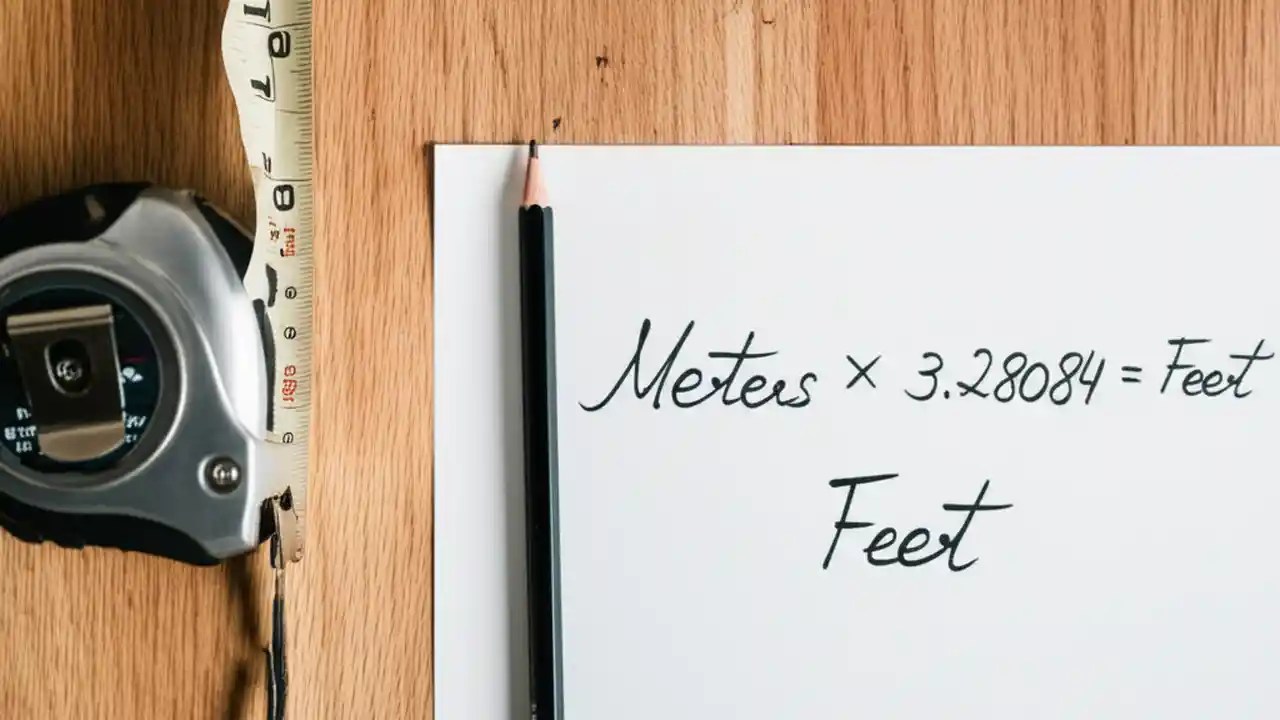 Meters × 3.28084 = Feet
Feet